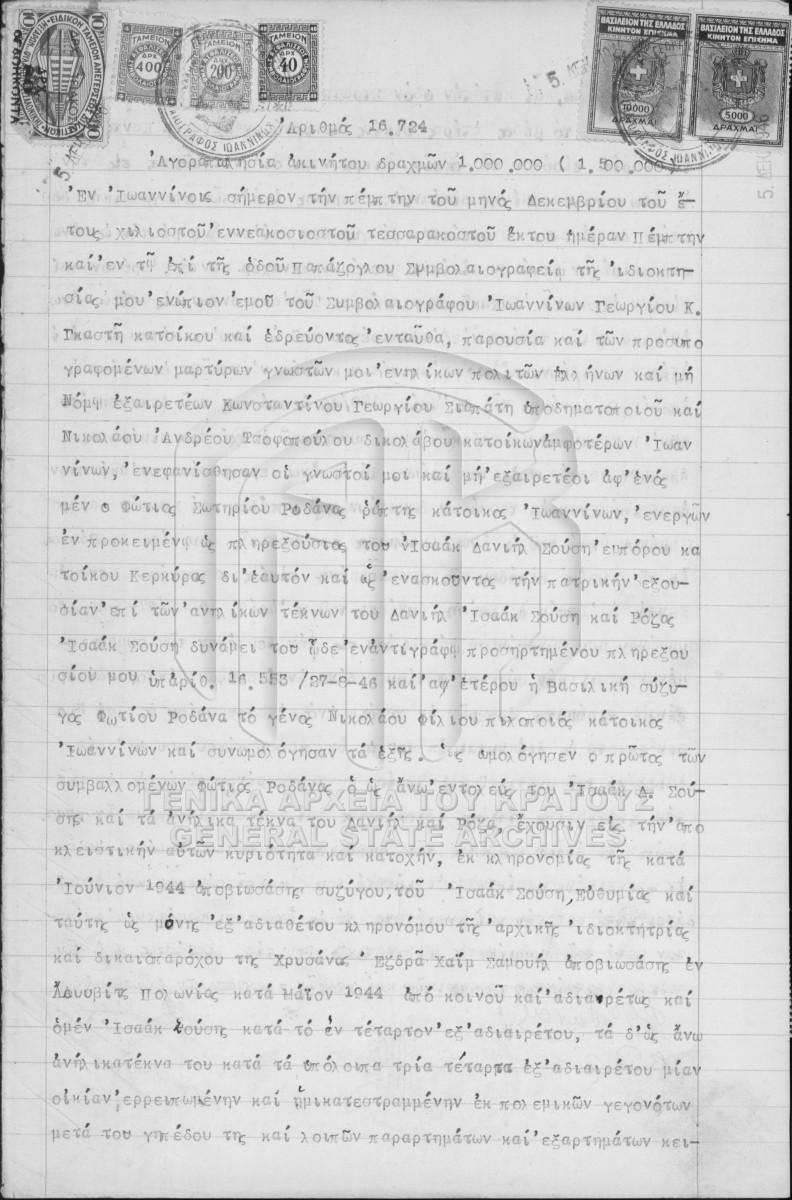 ΓΑΜΕΙΟΝ
ΔΡΧ
400
ΔΡΧ
200
ΔΡΧ
40
ΒΑΣΙΛΕΙΟΝ ΤΗΣ ΕΛΛΑΔΟΣ
ΚΙΝΗΤΟΝ ΕΠΙΣΗΜΑ
10000
ΔΡΑΧΜΑΙ
ΒΑΣΙΛΕΙΟΝ ΤΗΣ ΕΛΛΑΔΟΣ
ΚΙΝΗΤΟΝ ΕΠΙΣΗΜΑ
5000
ΔΡΑΧΜΑΙ
Ἀριθμός 16.724
Ἀγοραπωλησία ἀκινήτου δραχμῶν 1.000.000 ( 1.500.000)
Ἐν Ἰωαννίνοις σήμερον τήν πέμπτην τοῦ μηνός Δεκεμβρίου τοῦ ἔ-
τους χιλιοστοῦ ἐννεακοσιοστοῦ τεσσαρακοστοῦ ἕκτου ἡμέραν Πέμπτην
καί ἐν τῷ ἐπί τῆς ὁδοῦ Παπάζογλου Συμβολαιογραφείῳ τῆς ἰδιοκτη-
σίας μου ἐνώπιον ἐμοῦ τοῦ Συμβολαιογράφου Ἰωαννίνων Γεωργίου Κ.
Γκαστῆ κατοίκου καί ἑδρεύοντος ἐνταῦθα, παρουσία καί τῶν προσυπο
γραφομένων μαρτύρων γνωστῶν μοι ἐνηλίκων πολιτῶν Ἑλλήνων καί μή
Νόμῳ ἐξαιρετέων Κωνσταντίνου Γεωργίου Σιαπάτη ὑποδηματοποιοῦ καί
Νικολάου Ἀνδρέου Τσοφοπούλου δικολάβου κατοίκων ἀμφοτέρων Ἰωαν
νίνων, ἐνεφανίσθησαν οἱ γνωστοί μοι καί μή ἐξαιρετέοι ἀφ'ἑνός
μέν ο Φώτιος Σωτηρίου Ροδάνας ράπτης κάτοικος Ἰωαννίνων, ἐνεργῶν
ἐν προκειμένῳ ὡς πληρεξούσιος του Ἰσαάκ Δανιήλ Σούση ἐμπόρου κα
τοίκου Κερκύρας δι'ἑαυτόν καί ὡς ἐνασκοῦντος τήν πατρικήν ἐξου-
σίαν ἐπί τῶν ἀνηλίκων τέκνων του Δανιήλ Ἰσαάκ Σούση καί Ρόζας
Ἰσαάκ Σούση δυνάμει του ὧδε ἐν ἀντιγράφῳ προσηρτημένου πληρεξου
σίου μου ὑπ'ἀριθ. 16.553 /27-9-46 καί ἀφ'ἑτέρου ἡ Βασιλική σύζυ-
γος Φωτίου Ροδάνα τό γένος Νικολάου Φίλιου πιλοποιός κάτοικος
Ἰωαννίνων καί συνωμολόγησαν τά ἑξῆς. Ὡς ωμολόγησεν ο πρῶτος τῶν
συμβαλλομένων Φώτιος Ροδάνας ὁ ὡς ἄνω ἐντολεύς του Ἰσαάκ Δ. Σού-
σης καί τά ἀνήλικα τέκνα του Δανιήλ καί Ρόζα, ἔχουσιν εἰς τήν ἀπο
κλειστικήν αὐτῶν κυριότητα καί κατοχήν, ἐκ κληρονομίας τῆς κατά
Ἰούνιον 1944 ἀποβιωσάσης συζύγου, τοῦ Ἰσαάκ Σούση, Εὐθυμίας καί
ταύτης ὡς μόνης ἐξ ἀδιαθέτου κληρονόμου τῆς ἀρχικῆς ἰδιοκτητρίας
καί δικαιοπαρόχου της Χρυσάνας Ἐζδρᾶ Χαΐμ Σαμουήλ ἀποβιωσάσης ἐν
Ἀουσβιτς Πολωνίας κατά Μάϊον 1944 ἀπό κοινοῦ καί ἀδιαιρέτως καί
ὁμέν Ἰσαάκ Σούσης κατά τό ἐν τέταρτον ἐξ ἀδιαιρέτου, τά δ'ὡς ἄνω
ἀνήλικα τέκνα του κατά τά ὑπόλοιπα τρία τέταρτα ἐξ ἀδιαιρέτου μίαν
οἰκίαν ἐρρειπωμένην καί ἡμικατεστραμμένην ἐκ πολεμικῶν γεγονότων
μετά του γηπέδου της καί λοιπῶν παραρτημάτων καί ἐξαρτημάτων κει-
ΓΕΝΙΚΑ ΑΡΧΕΙΑ ΤΟΥ ΚΡΑΤΟΥΣ
GENERAL STATE ARCHIVES